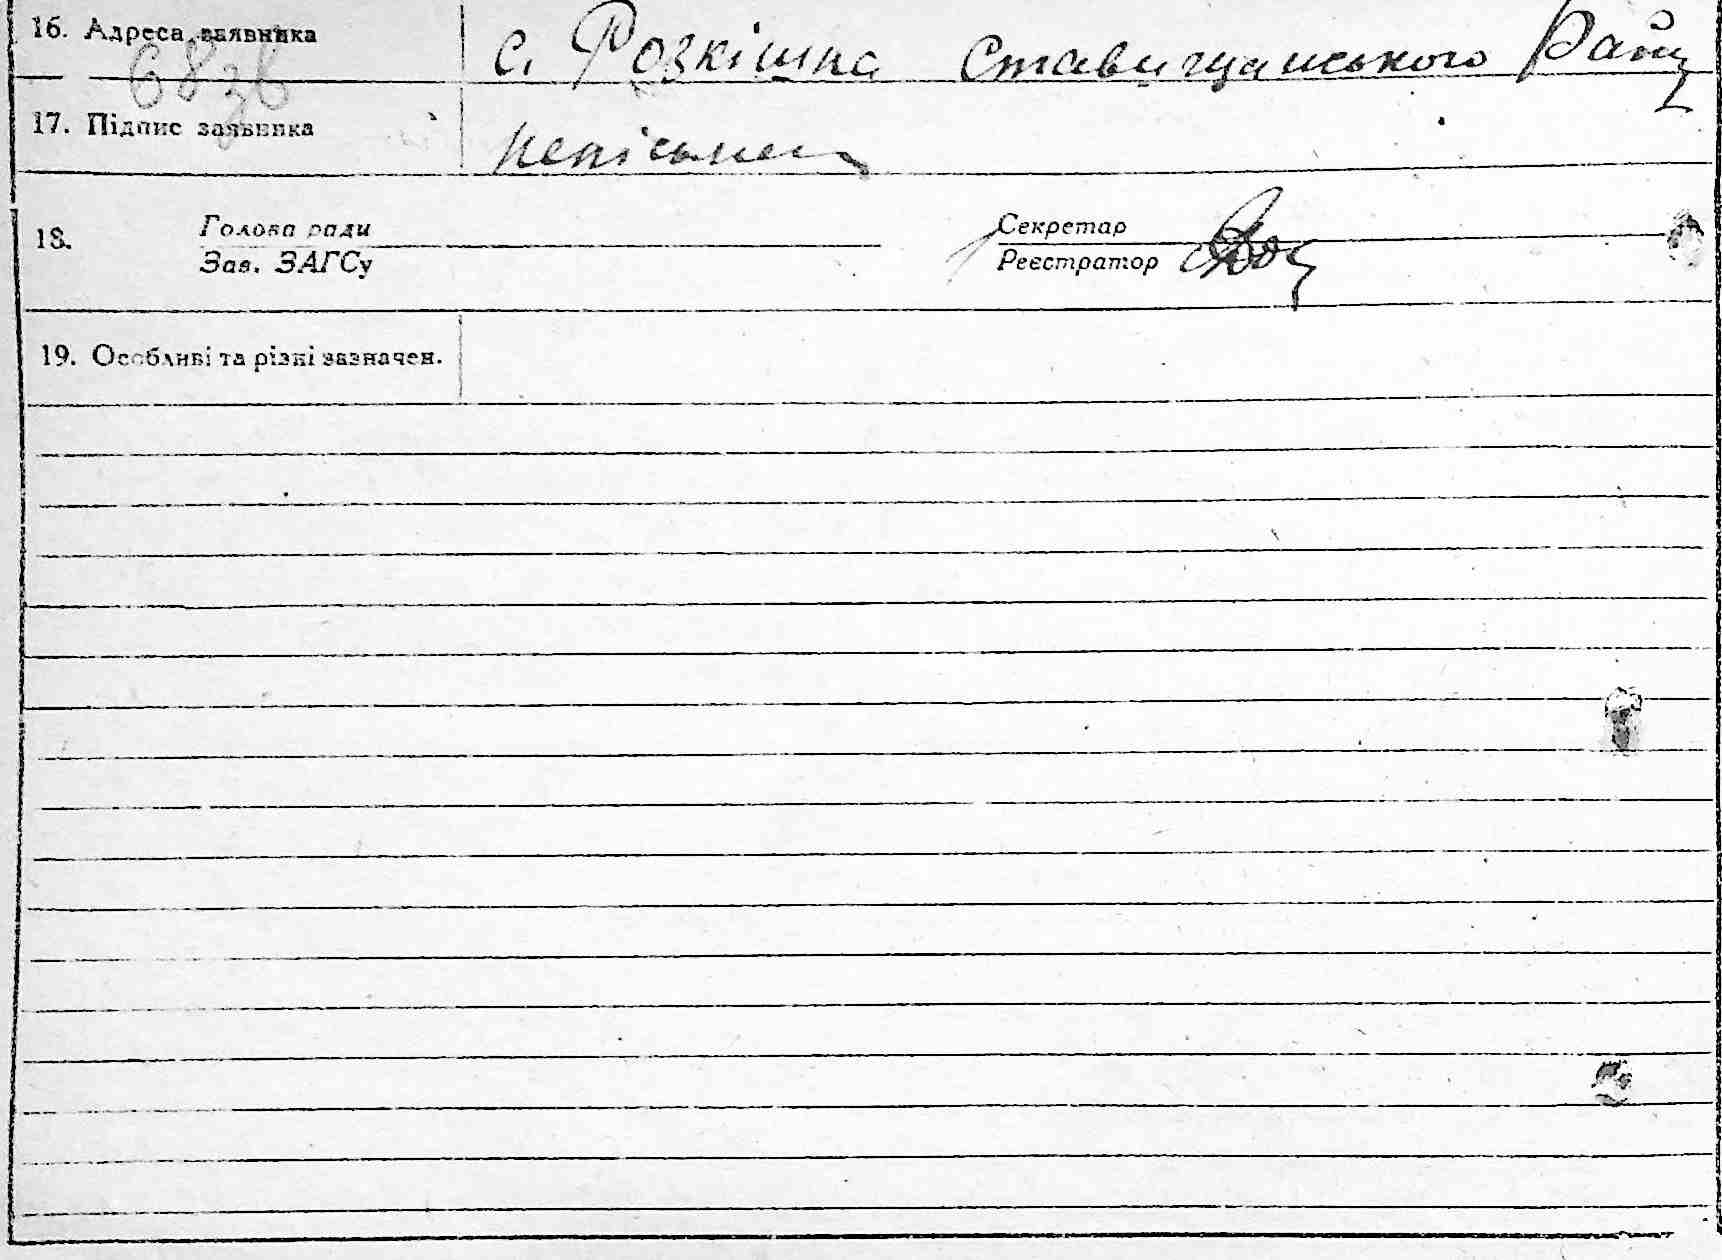 16. Адреса заявника с. Розкішна Ставищанського Району
68зв
17. Підпис заявника непісьмен
18. Голова ради Секретар
Зав. ЗАГСу Реєстратор
19. Особливі та різні зазначен.